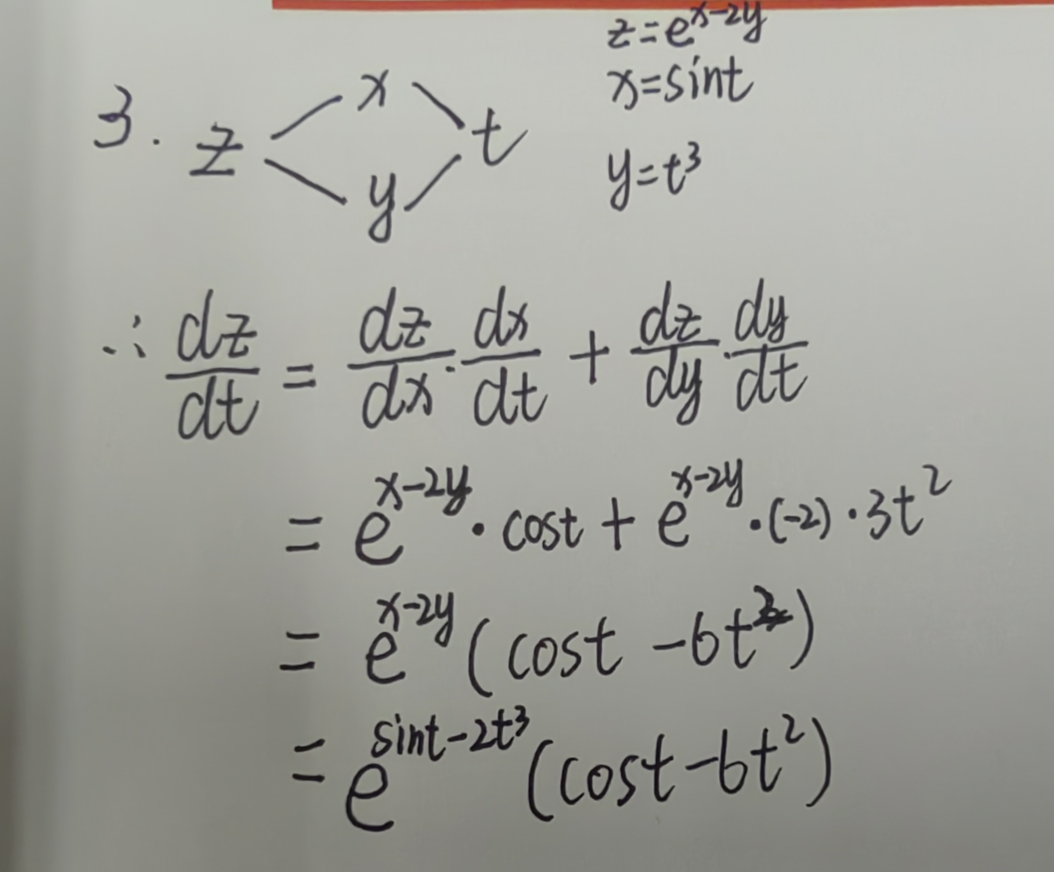 z=e^{x-2y}
x=sint
3. z x y t
y=t³
∴ dz/dt = dz/dx · dx/dt + dz/dy · dy/dt
= e^{x-2y} · cost + e^{x-2y} · (-2) · 3t²
= e^{x-2y} (cost - 6t²)
= e^{sint-2t³} (cost - 6t²)